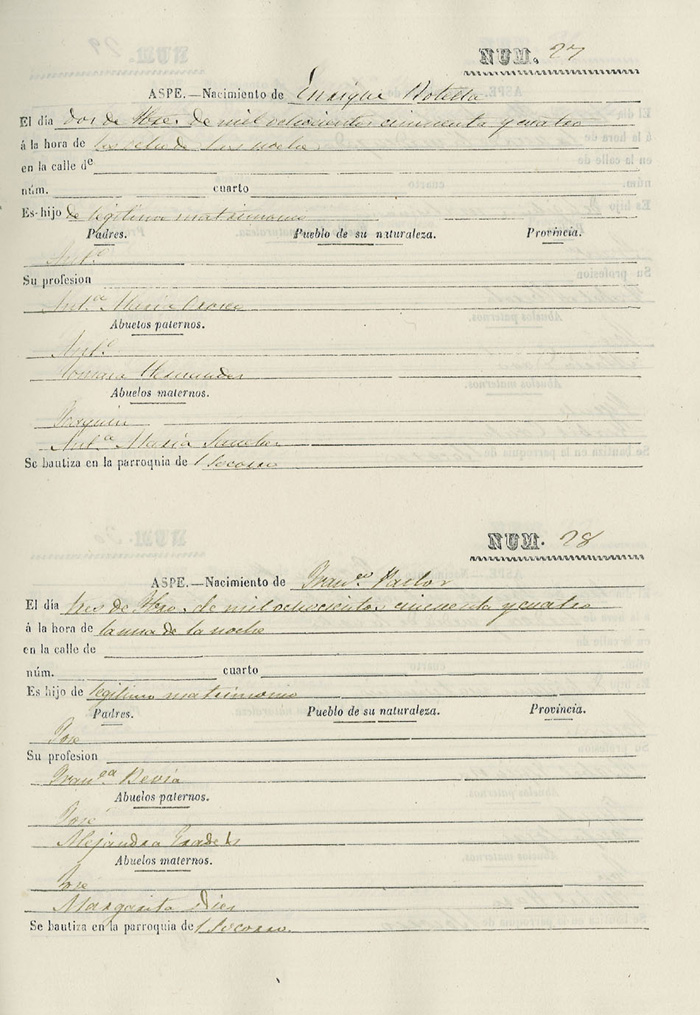 NUM. 27
ASPE.—Nacimiento de Enrique Botella
El día dos de de mil ochocientos cincuenta y cuatro
á la hora de de la noche
en la calle de
núm. cuarto
Es hijo de legitimo matrimonio
Padres. Pueblo de su naturaleza. Provincia.
Ant.º
Su profesion
Ant.ª Maria
Abuelos paternos.
Ant.º
Hernandez
Abuelos maternos.
Joaquin
Ant.ª Maria Sanchez
Se bautiza en la parroquia de l Socorro
NUM. 28
ASPE.—Nacimiento de Fran.co Pastor
El día tres de de mil ochocientos cincuenta y cuatro
á la hora de la una de la noche
en la calle de
núm. cuarto
Es hijo de legitimo matrimonio
Padres. Pueblo de su naturaleza. Provincia.
José
Su profesion
Fran.ca Bevia
Abuelos paternos.
José
Alejandra
Abuelos maternos.
José
Margarita Dies
Se bautiza en la parroquia de l Socorro